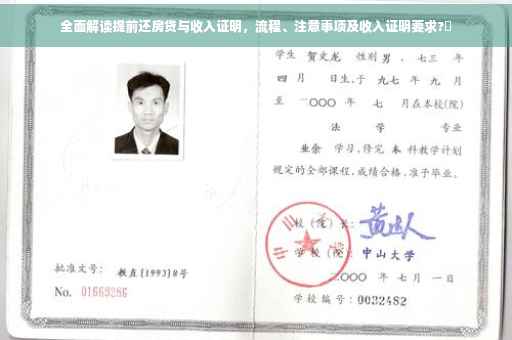 全面解读提前还房贷与收入证明，流程、注意事项及收入证明要求?
学生 贺文龙 性别 男 ，七三 年
四 月 日生，于 九七 年 九 月
至 二〇〇〇 年 七 月在本校(院)
法 学 专业
业余 学习，修完 本 科教学计划
规定的全部课程，成绩合格，准予毕业。
校(院)长：
学校(院)：中山大学
二〇〇〇 年 七 月 一 日
学校编号：0032482
批准文号：教直[1993]8号
No. 01669286